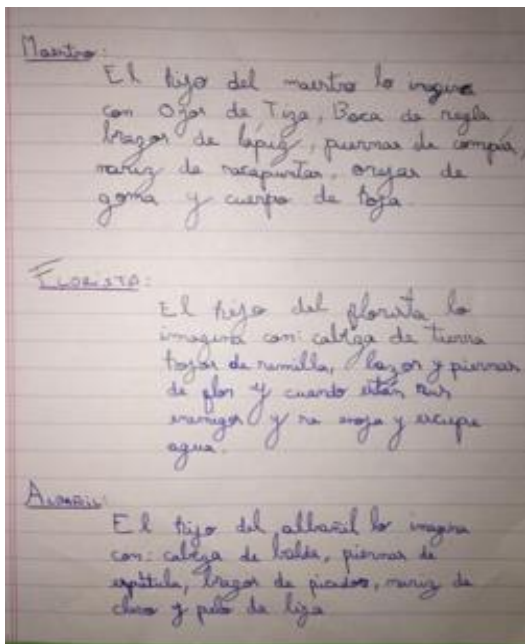 Maestro:
El hijo del maestro lo imagina
con Ojos de Tiza, Boca de regla
brazos de lápiz, piernas de compás,
nariz de sacapuntas, orejas de
goma y cuerpo de hoja.
FLORISTA:
El hijo del florista lo
imagina con: cabeza de tierra
hojos de semilla, brazos y piernas
de flor y cuando están sus
enemigos y se enoja y escupe
agua.
ALBAÑIL:
El hijo del albañil lo imagina
con: cabeza de balde, piernas de
espátula, brazos de picados, nariz de
clavo y pelo de lija